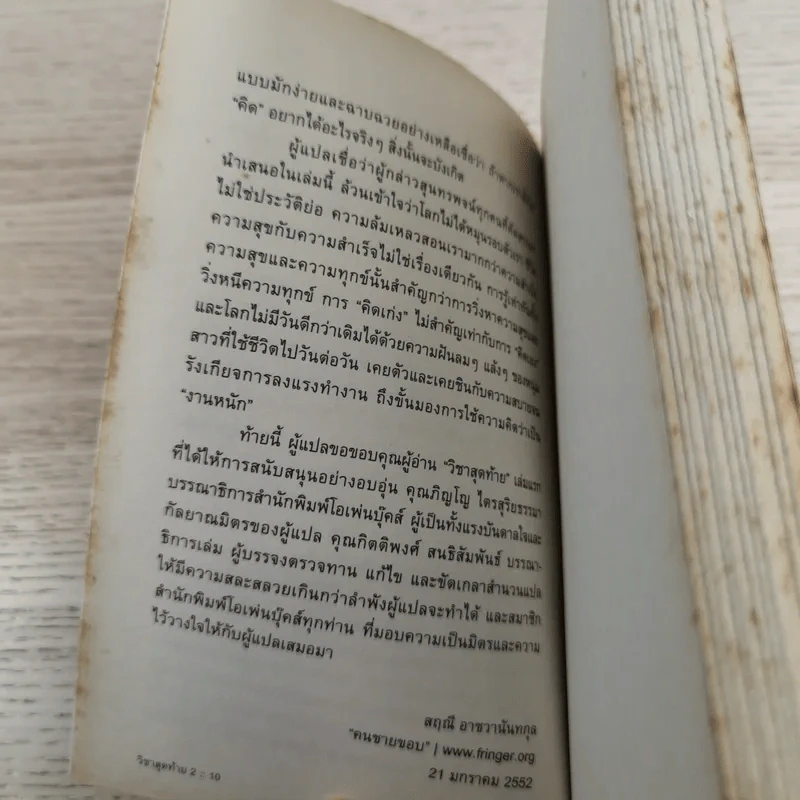 แบบมักง่ายและฉาบฉวยอย่างเหลือเชื่อว่า
“คิด” อยากได้อะไรจริงๆ สิ่งนั้นจะบังเกิด
ผู้แปลเชื่อว่าผู้กล่าวสุนทรพจน์ทุกคนที่
นำเสนอในเล่มนี้ ล้วนเข้าใจว่าโลกไม่ได้หมุนรอบตัวเรา
ไม่ใช่ประวัติย่อ ความล้มเหลวสอนเรามากกว่าความสำเร็จ
ความสุขกับความสำเร็จไม่ใช่เรื่องเดียวกัน การรู้เท่าทัน
ความสุขและความทุกข์นั้นสำคัญกว่าการวิ่งหาความสุขและ
วิ่งหนีความทุกข์ การ “คิดเก่ง” ไม่สำคัญเท่ากับการ
และโลกไม่มีวันดีกว่าเดิมได้ด้วยความฝันลมๆ แล้งๆ ของหนุ่ม
สาวที่ใช้ชีวิตไปวันต่อวัน เคยตัวและเคยชินกับความสบายจน
รังเกียจการลงแรงทำงาน ถึงขั้นมองการใช้ความคิดว่าเป็น
“งานหนัก”
ท้ายนี้ ผู้แปลขอขอบคุณผู้อ่าน “วิชาสุดท้าย” เล่มแรก
ที่ได้ให้การสนับสนุนอย่างอบอุ่น คุณภิญโญ ไตรสุริยธรรมา
บรรณาธิการสำนักพิมพ์โอเพ่นบุ๊คส์ ผู้เป็นทั้งแรงบันดาลใจและ
กัลยาณมิตรของผู้แปล คุณกิตติพงศ์ สนธิสัมพันธ์ บรรณา-
ธิการเล่ม ผู้บรรจงตรวจทาน แก้ไข และขัดเกลาสำนวนแปล
ให้มีความสละสลวยเกินกว่าลำพังผู้แปลจะทำได้ และสมาชิก
สำนักพิมพ์โอเพ่นบุ๊คส์ทุกท่าน ที่มอบความเป็นมิตรและความ
ไว้วางใจให้กับผู้แปลเสมอมา
สฤณี อาชวานันทกุล
“คนชายขอบ” | www.fringer.org
21 มกราคม 2552
วิชาสุดท้าย 2 :: 10